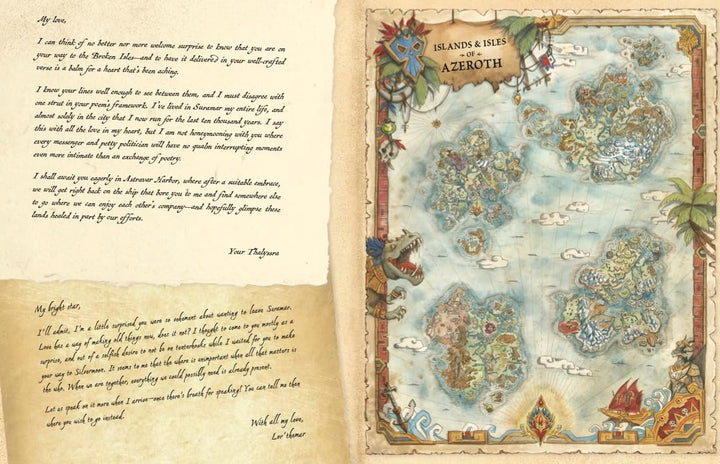 My love,
I can think of no better nor more welcome surprise to know that you are on
your way to the Broken Isles—and to have it delivered in your well-crafted
verse is a balm for a heart that's been aching.
I know your lines well enough to see between them, and I must disagree with
one strut in your poem's framework. I've lived in Suramar my entire life, and
almost solely in the city that I now run for the last ten thousand years. I say
this with all the love in my heart, but I am not honeymooning with you where
every messenger and petty politician will have no qualm interrupting moments
even more intimate than an exchange of poetry.
I shall await you eagerly in Astravar Harbor, where after a suitable embrace,
we will get right back on the ship that bore you to me and find somewhere else
to go where we can enjoy each other's company—and hopefully glimpse these
lands healed in part by our efforts.
Your Thalyssra
My bright star,
I'll admit, I'm a little surprised you were so vehement about wanting to leave Suramar.
Love has a way of making old things new, does it not? I thought to come to you mostly as a
surprise, and out of a selfish desire to not be on tenterhooks while I waited for you to make
your way to Silvermoon. It seems to me that the where is unimportant when all that matters is
the who. When we are together, everything we could possibly need is already present.
Let us speak on it more when I arrive—once there's breath for speaking! You can tell me then
where you wish to go instead.
With all my love,
Lor'themar
ISLANDS & ISLES
OF
AZEROTH